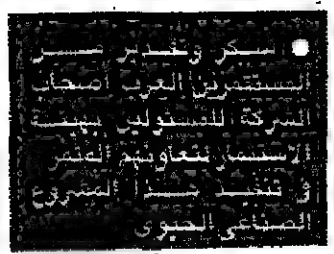 ● الشكر وتقدير من
المستثمرين العرب أصحاب
الشركة للمسئولين بهيئة
الاستثمار لتعاونهم المثمر
في تنفيذ هذا المشروع
الصناعي الحيوى